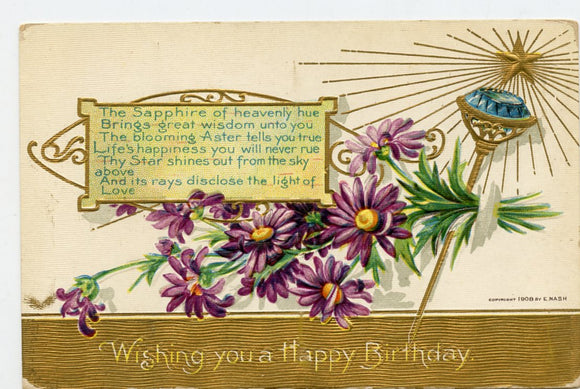 The Sapphire of heavenly hue
Brings great wisdom unto you
The blooming Aster tells you true
Life's happiness you will never rue
Thy Star shines out from the sky
above
And its rays disclose the light of
Love
COPYRIGHT 1908 BY E. NASH
Wishing you a Happy Birthday.